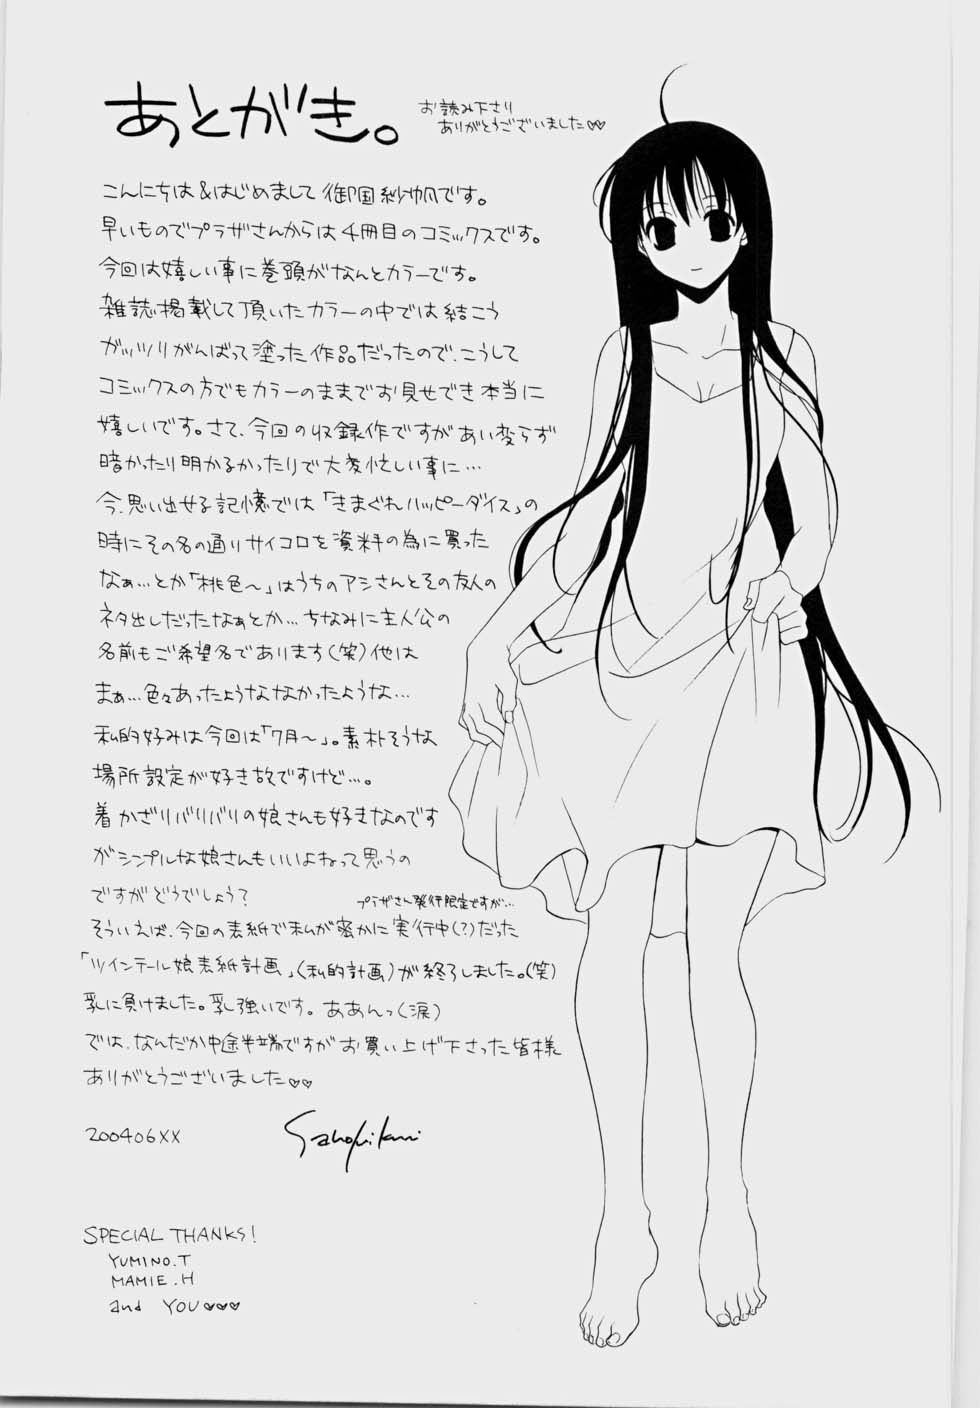 あとがき。
お読み下さり
ありがとうございました♡♡
こんにちは&はじめまして御国紗帆です。
早いものでプラザさんからは4冊目のコミックスです。
今回は嬉しい事に巻頭がなんとカラーです。
雑誌掲載して頂いたカラーの中では結こう
ガッツリがんばって塗った作品だったので、こうして
コミックスの方でもカラーのままでお見せでき本当に
嬉しいです。さて、今回の収録作ですがあい変らず
暗かったり明かるかったりで大変忙しい事に…
今、思い出せる記憶では「きまぐれハッピーダイス」の
時にその名の通りサイコロを資料の為に買った
なぁ…とか「桃色〜」はうちのアシさんとその友人の
ネタ出しだったなぁとか…ちなみに主人公の
名前もご希望名であります(笑)他は
まぁ…色々あったようななかったような…
私的好みは今回は「7月〜」。素朴そうな
場所設定が好き故ですけど…。
着かざりバリバリの娘さんも好きなのです
がシンプルな娘さんもいいよねって思うの
ですがどうでしょう?
プラザさん発行限定ですが…
そういえば、今回の表紙で私が密かに実行中(?)だった
「ツインテール娘表紙計画」(私的計画)が終了しました。(笑)
乳に負けました。乳強いです。ああんっ(涙)
では、なんだか中途半端ですがお買い上げ下さった皆様
ありがとうございました♡♡
200406XX
Saho Mikuni
SPECIAL THANKS!
YUMINO.T
MAMIE.H
and YOU♡♡♡